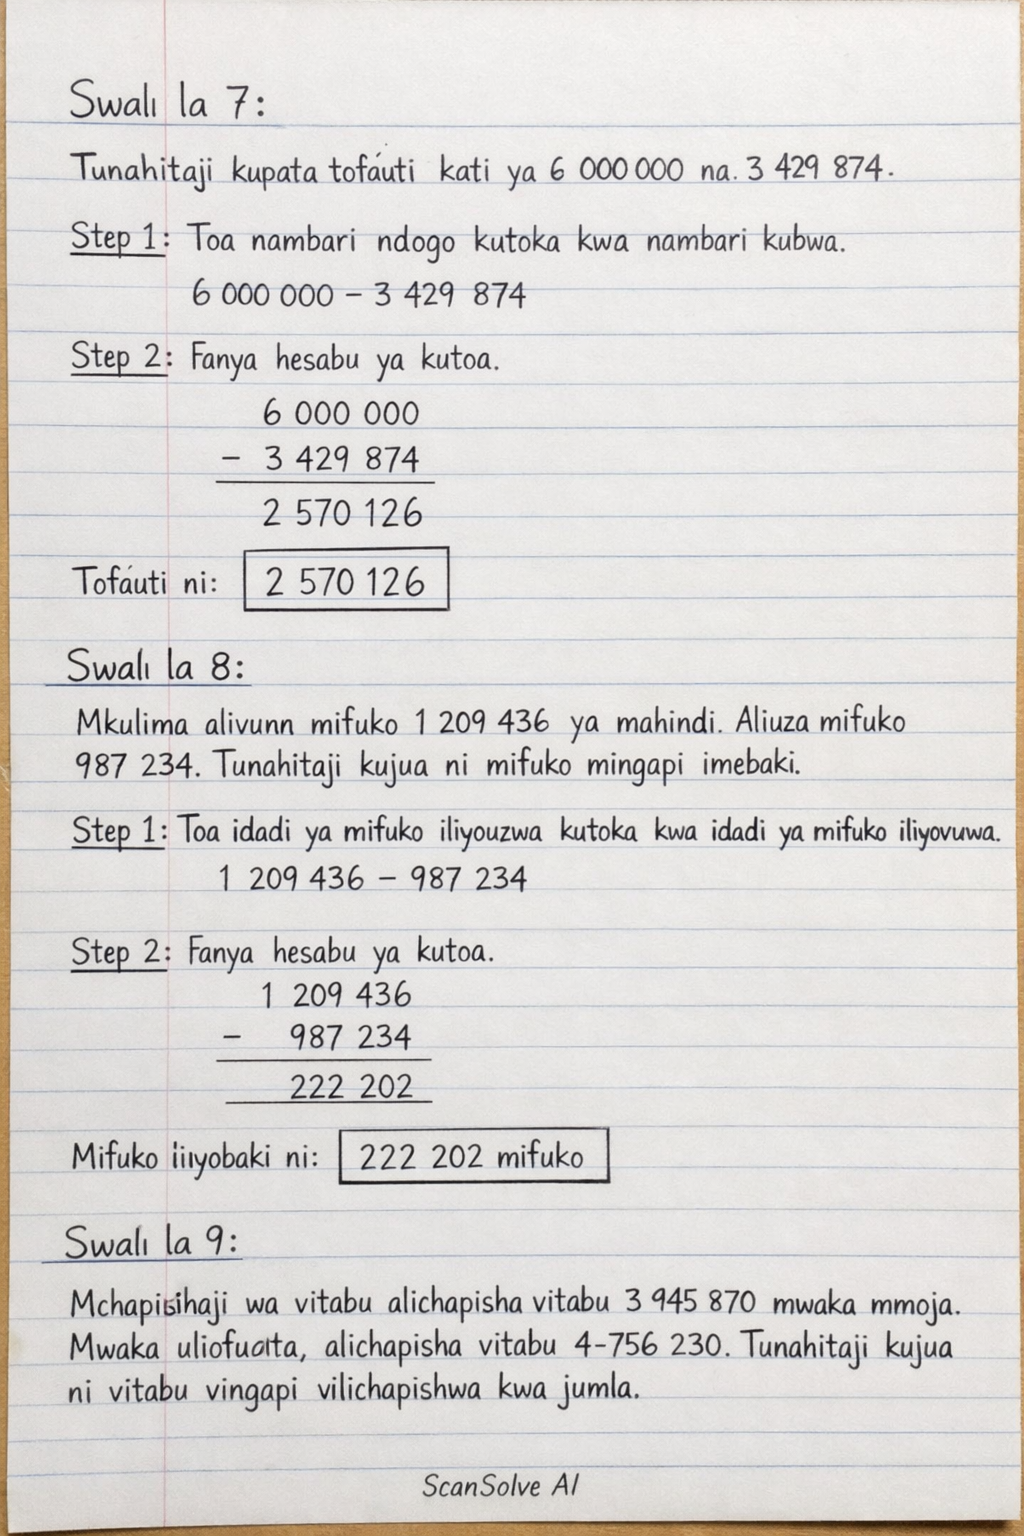 Swalı la 7:
Tunahitaji kupata tofáuti kati ya 6 000 000 na. 3 429 874.
Step 1: Toa nambari ndogo kutoka kwa nambari kubwa.
6 000 000 – 3 429 874
Step 2: Fanya hesabu ya kutoa.
6 000 000
– 3 429 874
2 570 126
Tofáuti ni: 2 570 126
Swalı la 8:
Mkulima alivunn mifuko 1 209 436 ya mahindi. Aliuza mifuko
987 234. Tunahitaji kujua ni mifuko mingapi imebaki.
Step 1: Toa idadi ya mifuko iliyouzwa kutoka kwa idadi ya mifuko iliyovuwa.
1 209 436 – 987 234
Step 2: Fanya hesabu ya kutoa.
1 209 436
– 987 234
222 202
Mifuko ni: 222 202 mifuko
Swalı la 9:
wa vitabu alichapisha vitabu 3 945 870 mwaka mmoja.
Mwaka alichapisha vitabu 4-756 230. Tunahitaji kujua
ni vitabu vingapi vilichapishwa kwa jumla.
ScanSolve AI